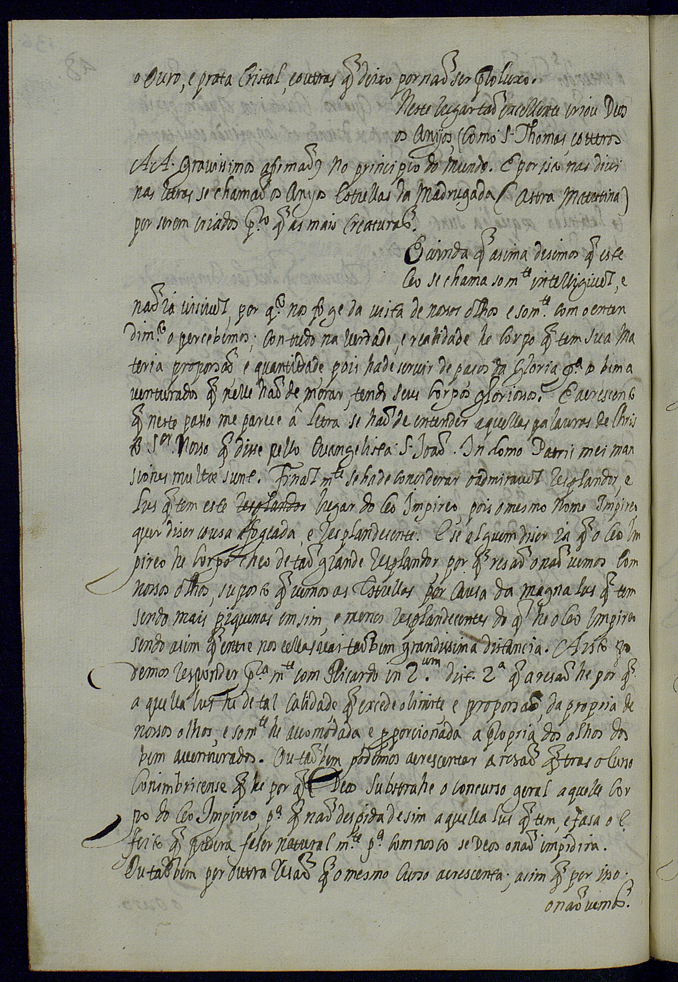 o Ouro, e prata Cristal, e outras q̃ deixo por naõ ser prolixo.
Neste lugar taõ excellente criou Deos
os Anjos (Como S. Thomas e outros
A A. Gravissimos afirmaõ) No principio do mundo. E por isa nas divi
nas letras se chamaõ os Anjos Estrellas da Madrugada (Astra Matutina)
por serem criados pr.o q̃ as mais Creaturas.
E ainda q̃ asima desimos q̃ este
Ceo se chama som.te intelligivel, e
naõ ia visivel, por q̃ nos foge da vista de nosos olhos e som.te com o enten
dim.to o percebimos; Contudo na verdade, e realidade he Corpo q̃ tem sua Ma
teria proporsaõ e quantidade pois hade servir de paso da Gloria p.a o bem a
venturados q̃ nelle haõ de morar, tendo seus Corpos gloriosos. E acresento
q̃ neste paso me parece â Letra se haõ de entender aquellas palavras de Chris
to S.or Noso q̃ disse pello Evangelista S. Joaõ. In domo Patris mei man
siones multæ sunt. Final m.te se hade considerar o admiravel resplandor, e
lus q̃ tem este resplandor lugar do Ceo Impireo, pois o mesmo Nome Impireo
quer diser cousa afogeada, e resplandecente. E se alguem diser ia q̃ o Ceo Im
pireo he Corpo cheo de taõ grande resplandor por q̃ resaõ o naõ vemos Com
nosos olhos, suposto q̃ vemos as Estrellas por Causa da magna lus q̃ tem
sendo mais piquenas em sim, e menos resplandecentes do q̃ he o Ceo Impireo
sendo asim q̃ entre nos e ellas vai taõ bem grandissima distancia. A isto po
demos responder pr.a m.te com Ricardo in 2.um dist. 2.a q̃ a resaõ he por q̃
a quella lus he de tal Calidade q̃ excede o limite e proporsaõ, da propria de
nosos olhos e som.te he acomodada e pporcionada a propria dos olhos dos
bem aventurados. Ou taõ bem podemos acrescentar a resaõ q̃ tras o Curso
Conimbricense q̃ he por q̃ Deos Subtrahe o concurso geral a quelle Cor
po do Ceo Impireo p.a q̃ naõ despida de sim a quella lus q̃ tem, e fasa o e
feito q̃ podera faser natural m.te p.a com nosco se Deos o naõ impidira.
Ou taõ bem por outra resaõ q̃ o mesmo Curso acrescenta; asim q̃ por isso
o naõ vemos.